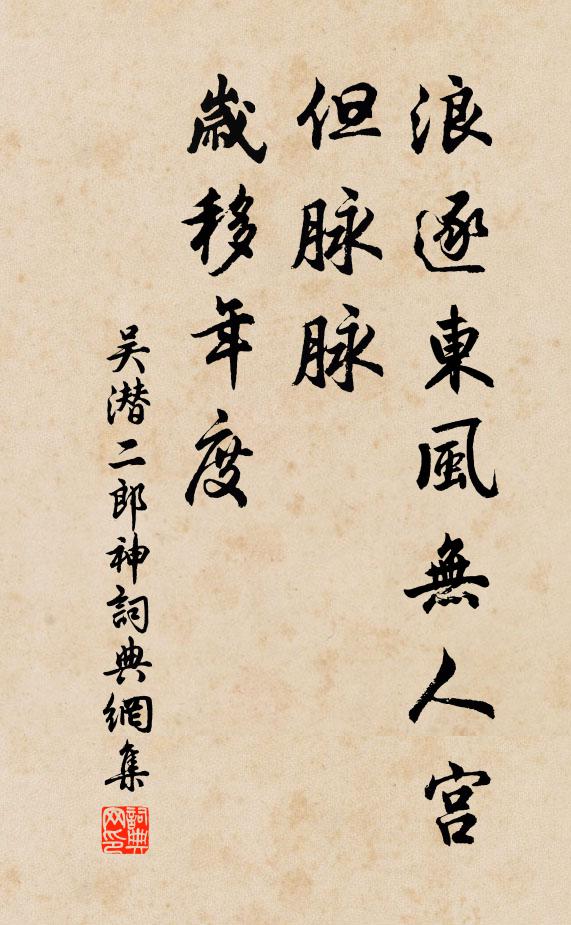 浪逐東風無人宫
但脉脉
歲移年度
吴潜二郎神詞典網集
詞典網印